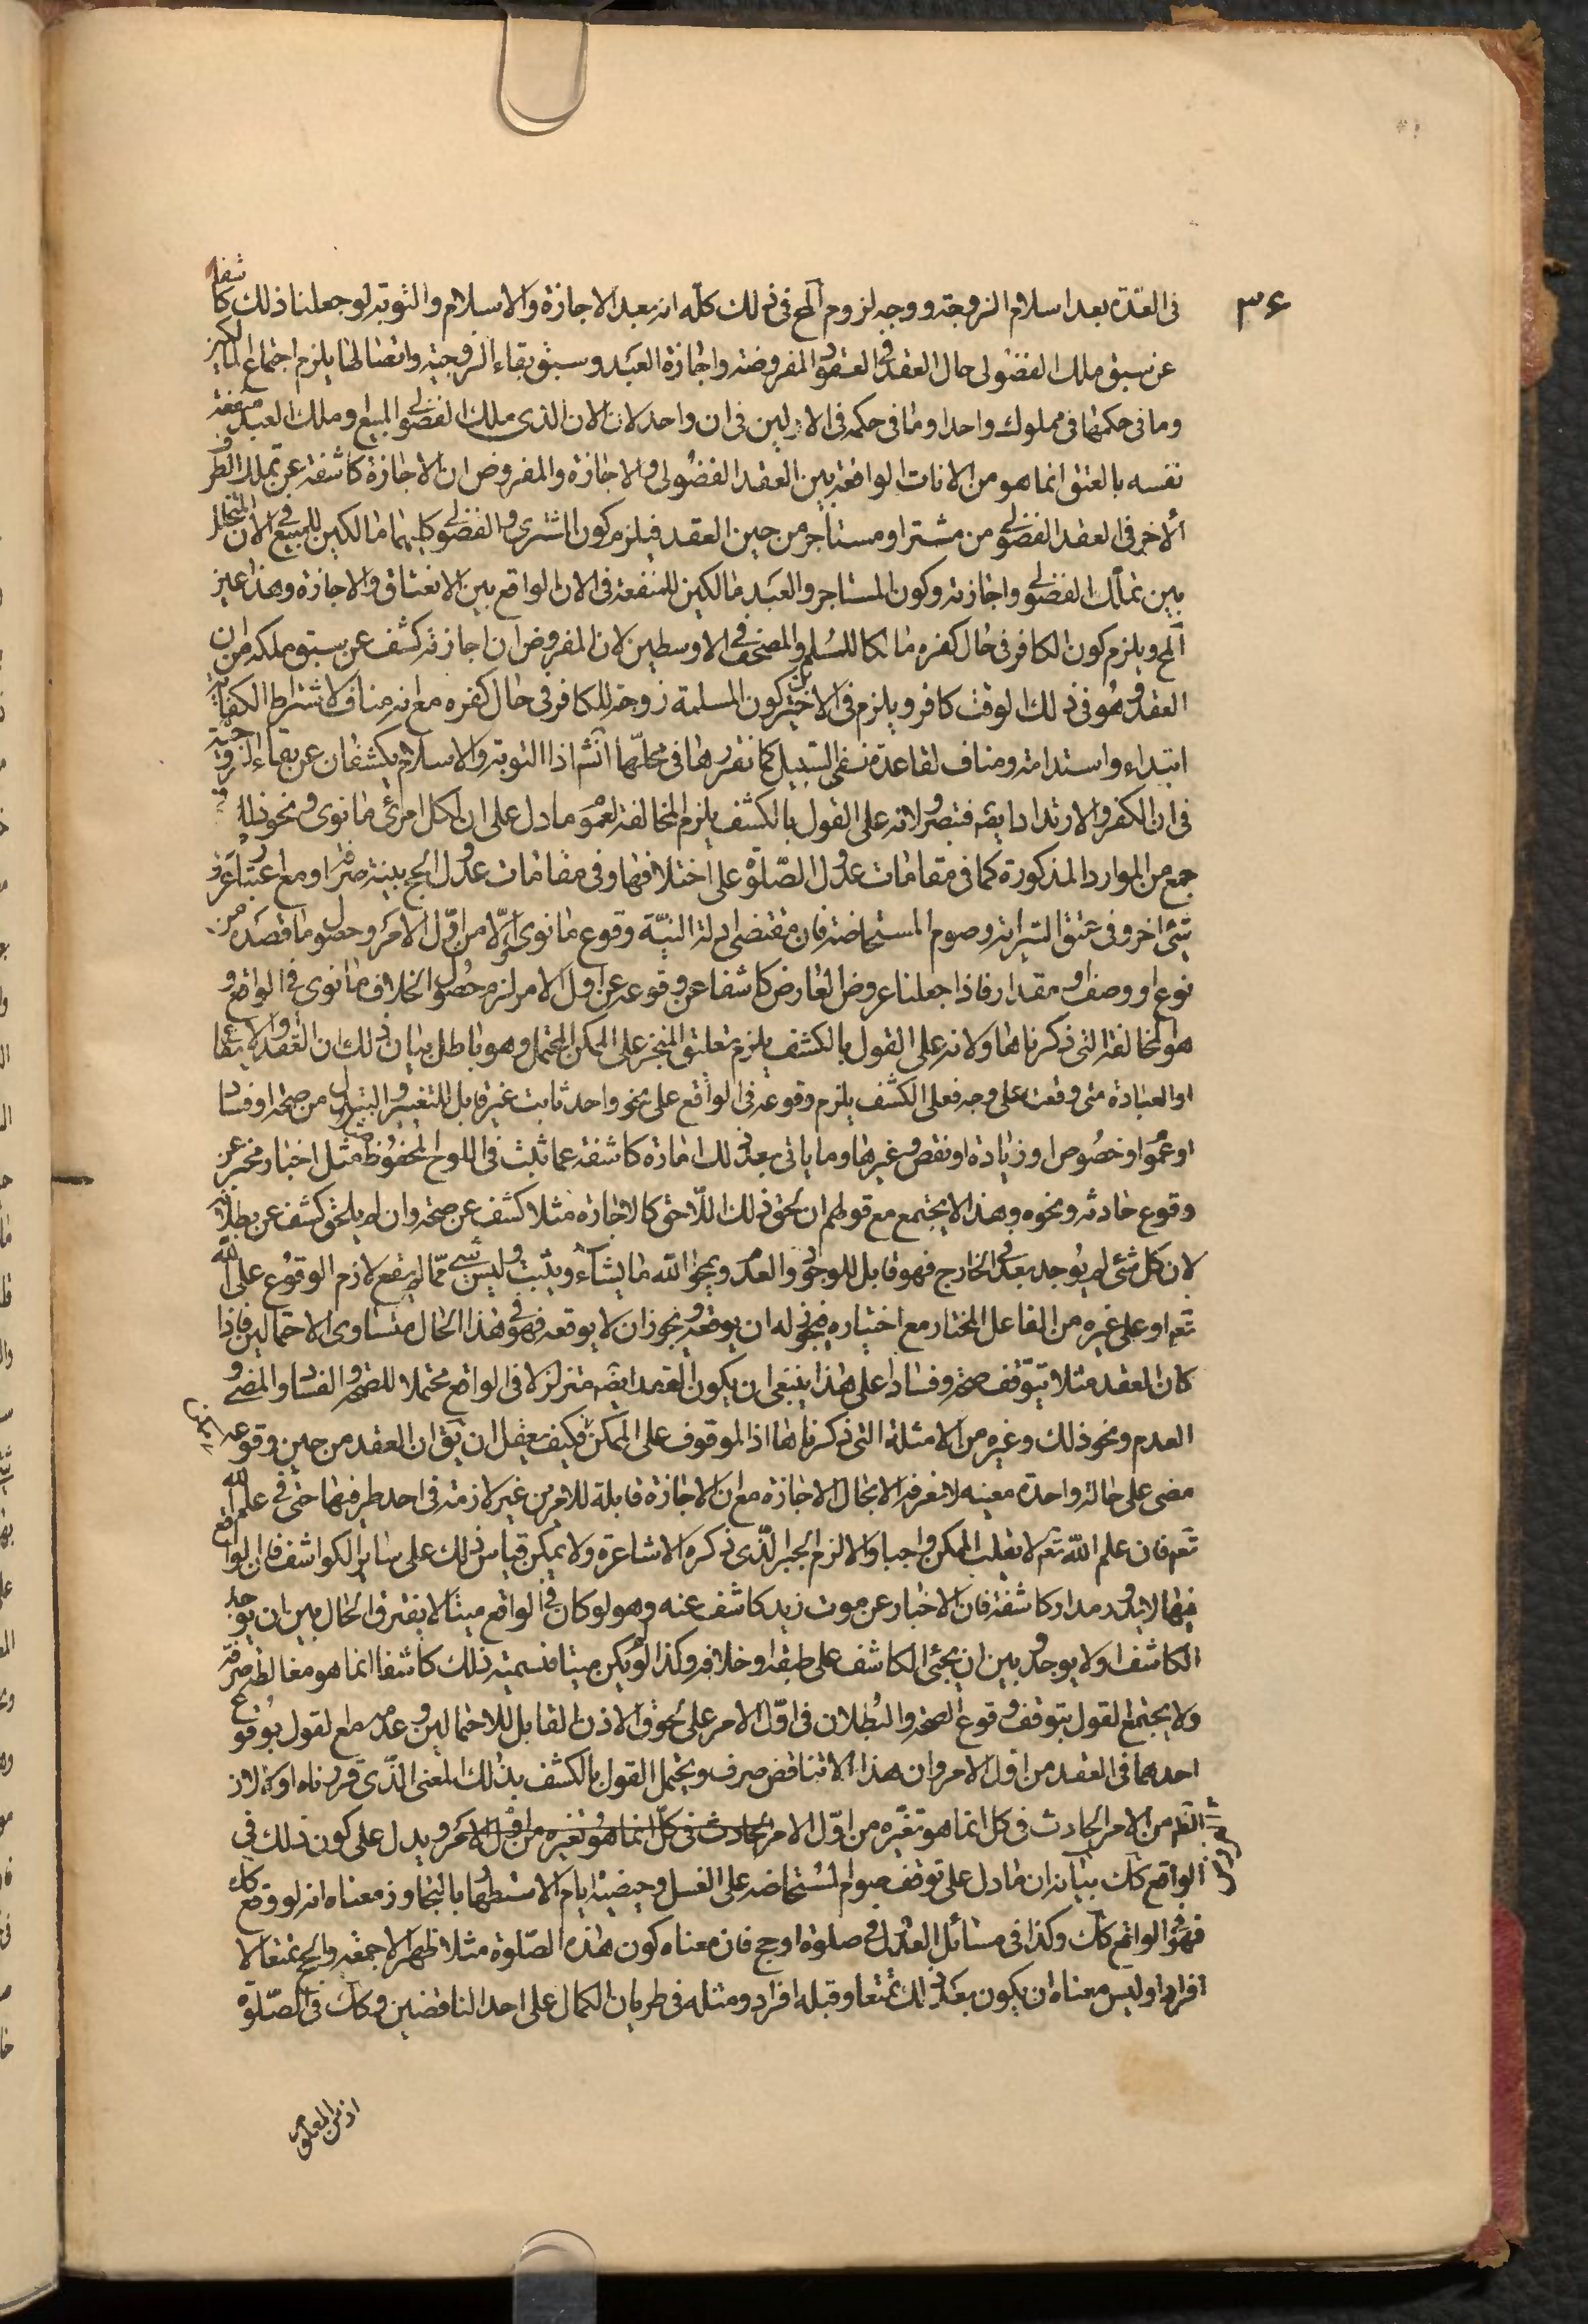 ٣۶
فى العدّة بعد اسلام الزوجة ووجه لزوم المح فى ذلك كلّه انه بعد الاجازة والاسلام والتوبة لو جعلنا ذلك كاشفا
عن سبق ملك الفضولى حال العقد فى العقود المفروضة واجازة العبد وسبق بقاء الزوجية واتصالها يلزم اجتماع المالكين
وما فى حكمهما فى مملوك واحد او ما فى حكمه فى الاولين فى ان واحد لان الان الذى ملك الفضولى المبيع او ملك العبد منفعة
نفسه بالعتق انما هو من الانات الواقعة بين العقد الفضولى والاجازة والمفروض ان الاجازة كاشفة عن تملك الطرف
الاخر فى العقد الفضولى من مشتر او مستأجر من حين العقد فيلزم كون المشترى والفضولى كليهما مالكين للمبيع فى الان المتخلل
بين تملك الفضولى واجازته وكون المستاجر والعبد مالكين للمنفعة فى الان الواقع بين الانعتاق والاجازة وهذا عين
المح ويلزم كون الكافر فى حال كفره مالكا للمسلم والمصحف فى الاوسطين لان المفروض ان اجازته كشف عن سبق ملكه من ان
العقد وهو فى ذلك الوقت كافر ويلزم فى الاخيرين كون المسلمة زوجة للكافر فى حال كفره مع انه مناف لاشتراط الكفائة
ابتداء واستدامة ومناف لقاعدة نفى السبيل كما نقررها فى محلّها انش اذا التوبة والاسلام يكشفان عن بقاء الزوجية
فى ان الكفر والارتداد ايضه فتبصر ولانه على القول بالكشف يلزم المخالفة لعموم ما دل على ان لكل امرئ ما نوى ونحو ذلك فى
جمع من الموارد المذكورة كما فى مقامات عدول الصّلوة على اختلافها وفى مقامات عدول الحج بينة صرفا او مع اعتبار
شئ اخر وفى عتق السراية وصوم المستحاضة فان مقتضى ادلة النيّة وقوع ما نوى اوّلا من اوّل الامر وحصول ما قصده من
نوع او وصف او مقدار فاذا جعلنا عروض العارض كاشفا عن وقوعه عن اول الامر لزم حصول الخلاف ما نوى فى الواقع و
هو المخالفة التى ذكرناها ولانه على القول بالكشف يلزم تعليق المنجز على الممكن المحتمل وهو باطل بيان ذلك ان العقد والايقاع
او العبادة متى وقعت على وجه فعلى الكشف يلزم وقوعه فى الواقع على نحو واحد ثابت غير قابل للتغيير والتبديل من صحة او فساد
او عموم او خصوص او زيادة او نقص وغيرها وما ياتى بعد ذلك امارة كاشفة عما ثبت فى اللوح المحفوظ مثل اخبار مخبر عن
وقوع حادثه ونحوه وهذا لا يجتمع مع قولهم ان لحق ذلك اللّاحق كالاجازة مثلا كشف عن صحته وان لم يلحق كشف عن بطلانه
لان كل شئ لم يوجد بعد فى الخارج فهو قابل للوجود والعدم ويمحو اللّه ما يشاء ويثبت وليس شئ ممّا لم يقع لازم الوقوع على اللّه
تعم او على غيره من الفاعل المختار مع اختياره فيجوز له ان يوقعه ويجوز ان لا يوقعه فهو فى هذا الحال متساوى الاحتمالين فاذا
كان العقد مثلا يتوقف صحة وفسادا على هذا ينبغى ان يكون العقد ايضه متزلزلا فى الواقع محتملا للصحة والفساد والمضى و
العدم ونحو ذلك وغيره من الامثلة التى ذكرناها اذ الموقوف على الممكن ممكن فكيف يعقل ان يق ان العقد من حين وقوعه
مضى على حالة واحدة معينه لا نعرفه الا بحال الاجازة مع ان الاجازة قابلة للامرين غير لازمة فى احد طرفيها حتى فى علم اللّه
تعم فان علم اللّه تعم لا يقلب الممكن واجبا والا لزم الجبر الّذى ذكره الاشاعرة ولا يمكن قياس ذلك على ساير الكواشف فان الواقع
فيها لا يدور مدار كاشفة فان الاخبار عن موت زيد كاشف عنه وهو لو كان فى الواقع ميتا لا يفترق الحال بين ان يوجد
الكاشف او لا يوجد وبين ان يجئ الكاشف على طبقه او خلافه وكذا لو لم يكن ميتا فتسمية ذلك كاشفا انما هو مغالطة صرفة
ولا يجتمع القول بتوقف وقوع الصحة والبطلان فى اوّل الامر على لحوق الاذن القابل للاحتمالين وعدمه مع القول بوقوع
احدهما فى العقد من اول الامر وان هذا الا تناقض صرف ويحتمل القول بالكشف بذلك المعنى الّذى قررناه اولا لان
الظم من الامر الحادث فى كل انما هو تغيّره من اوّل الامر الحادث فى كلّ انما هو تغيره من اوّل الامر ويدل على كون ذلك فى
الواقع كك بيانه ان ما دل على توقف صوم المستحاضه على الغسل وحيضية ايام الاستظهار بالتجاوز معناه انه لو وقع كك
فهو فى الواقع كك وكذا فى مسائل العدول فى صلوة او حج فان معناه كون هذه الصّلوة مثلا ظهرا لا جمعة والحج تمتعا لا
افرادا وليس معناه ان يكون بعد ذلك تمتعا وقبله افراد ومثله فى طريان الكمال على احد الناقصين وكك فى الصّلوة
اذ من المعلوم